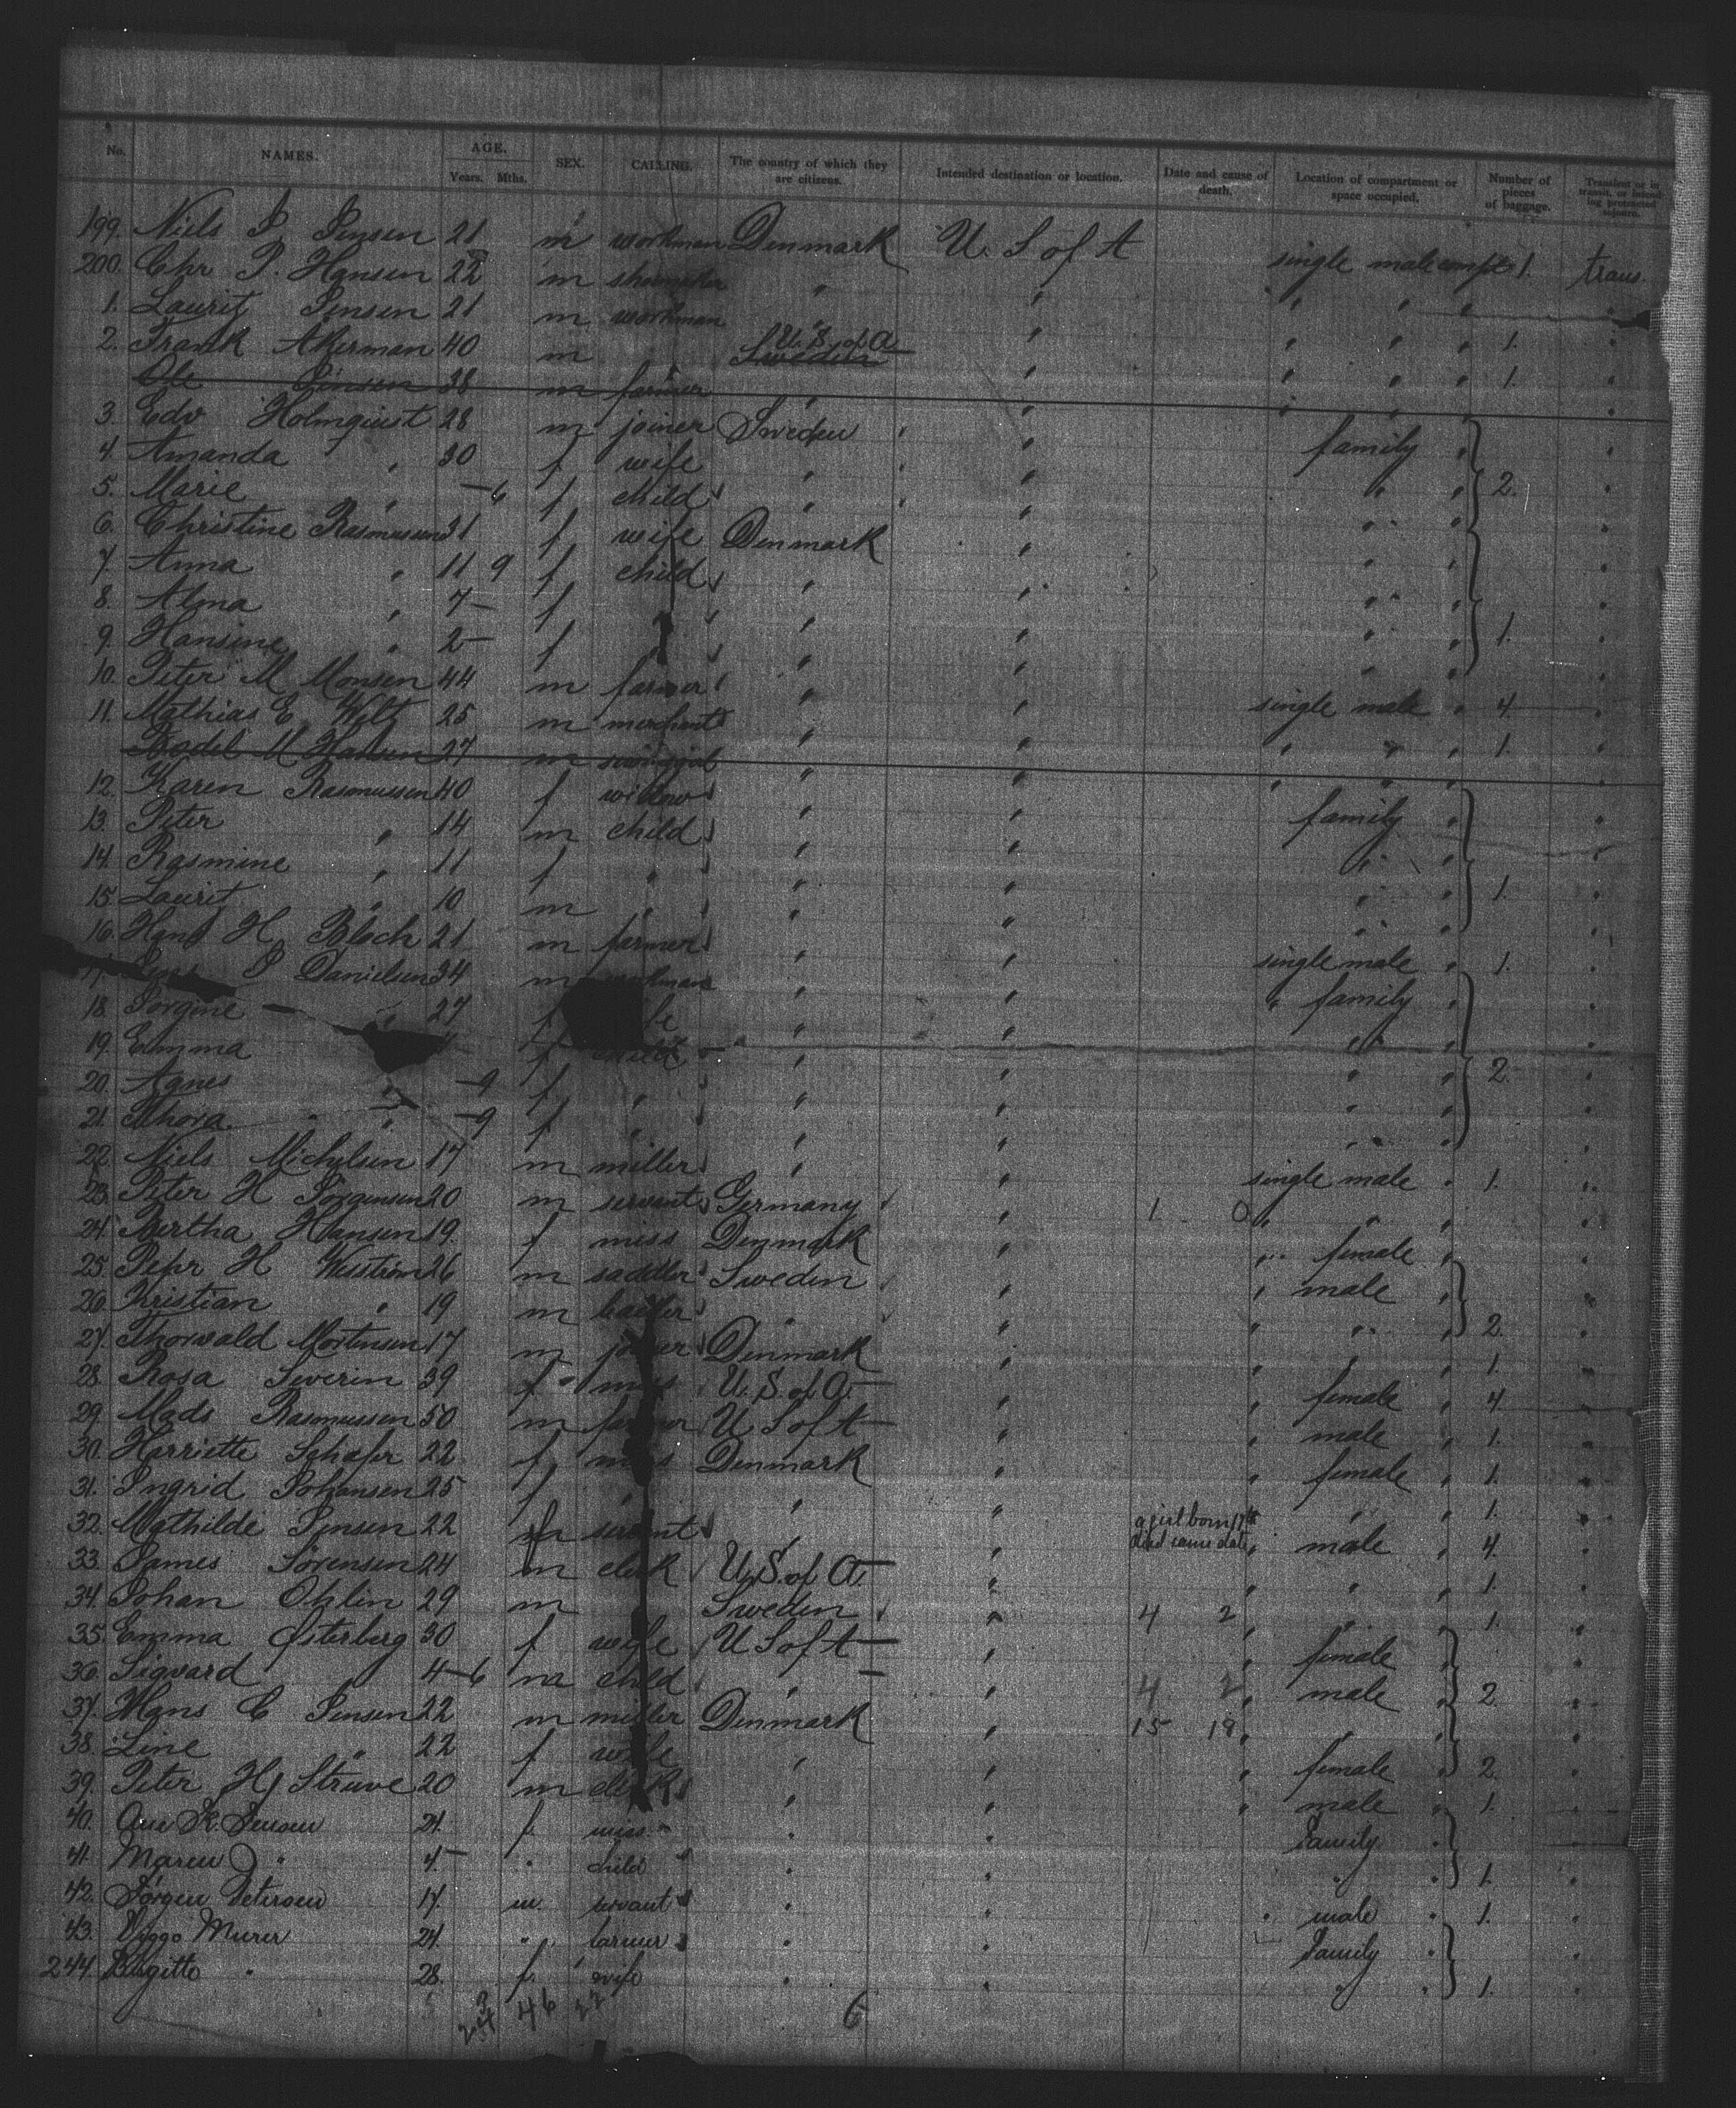 No. NAMES. AGE. Years. Mths. SEX. CALLING. The country of which they are citizens. Intended destination or location. Date and cause of death. Location of compartment or space occupied. Number of pieces of baggage. Transient or in transit, or intending protracted sojourn.
199. Niels J Jensen 21 m workman Denmark U. S of A single male compt 1. trans.
200. Chr P. Hansen 22 m shoemaker " " " " " "
1. Laurit Jensen 21 m workman " " " " " 1. "
2. Frank Akerman 40 m U. S. of A Sweden " " " " 1. "
Ole Jensen 38 m farmer " " " " " "
3. Edv Holmquist 28 m joiner Sweden " family " "
4. Amanda " 30 f wife " " " " 2. "
5. Marie " — 6 f child " " " " "
6. Christine Rasmussen 31 f wife Denmark " " " "
7. Anna " 11 9 f child " " " " "
8. Alma " 7 — f " " " " " 1. "
9. Hansine " 2 — f " " " " " "
10. Peter M Monsen 44 m farmer " " single male " 4 "
11. Mathias E Wilt 25 m merchant " " " " " 1. "
Bodel M Hansen 27 m " " " " " "
12. Karen Rasmussen 40 f widow " " family " "
13. Peter " 14 m child " " " " "
14. Rasmine " 11 f " " " " " 1. "
15. Laurit " 10 m " " " " " "
16. Hans H Bloch 21 m farmer " " single male " 1. "
17. Jens P Danielsen 34 m workman " " " family " "
18. Jorgine " 27 f " " " " "
19. Emma " f child " " " " 2. "
20. Agnes " — 9 f " " " " " "
21. Thora " — 9 f " " " " " "
22. Niels Michelsen 17 m miller " " single male " 1. "
23. Peter H Jörgensen 20 m servant Germany " 1 0 " " " "
24. Bertha Hansen 19. f miss Denmark " " female " "
25. Pehr H Weström 26 m saddler Sweden " " male " "
26. Kristian " 19 m " " " " " 2. "
27. Thorvald Mortensen 17 m joiner Denmark " " " " 1. "
28. Rosa Severin 39 f miss U. S. of A. — " " female " 4. "
29. Mads Rasmussen 50 m farmer U S of A — " " male " 1. "
30. Harriette Schafer 22 f miss Denmark " " female " 1. "
31. Ingrid Johansen 25 f " " " " " 1. "
32. Mathilde Jensen 22 f servant " " a girl born 17th died same date " male " 4. "
33. James Sörensen 24 m clerk U. S. of A. — " " " " 1. "
34. Johan Ohlin 29 m Sweden " 4 2 " " " 1. "
35. Emma Østerberg 30 f wife U S of A — " " female " "
36. Sigvard " 4 — 6 m child " — " 4 2 " male " 2. "
37. Hans C Jensen 22 m miller Denmark " 15 19 " " " "
38. Line " 22 f wife " " " female " 2. "
39. Peter H J Struve 20 m clerk " " " male " 1. "
40. Ane K. Jensen 24. f. miss " " family "
41. Maren " 4. — " child " " " " 1. "
42. Jörgen Petersen 17. m. servant " " " male " 1. "
43. Viggo Murer 24. " farmer " " family " "
244. Birgitte " 28. f. wife " " " " 1. "
46 22 6